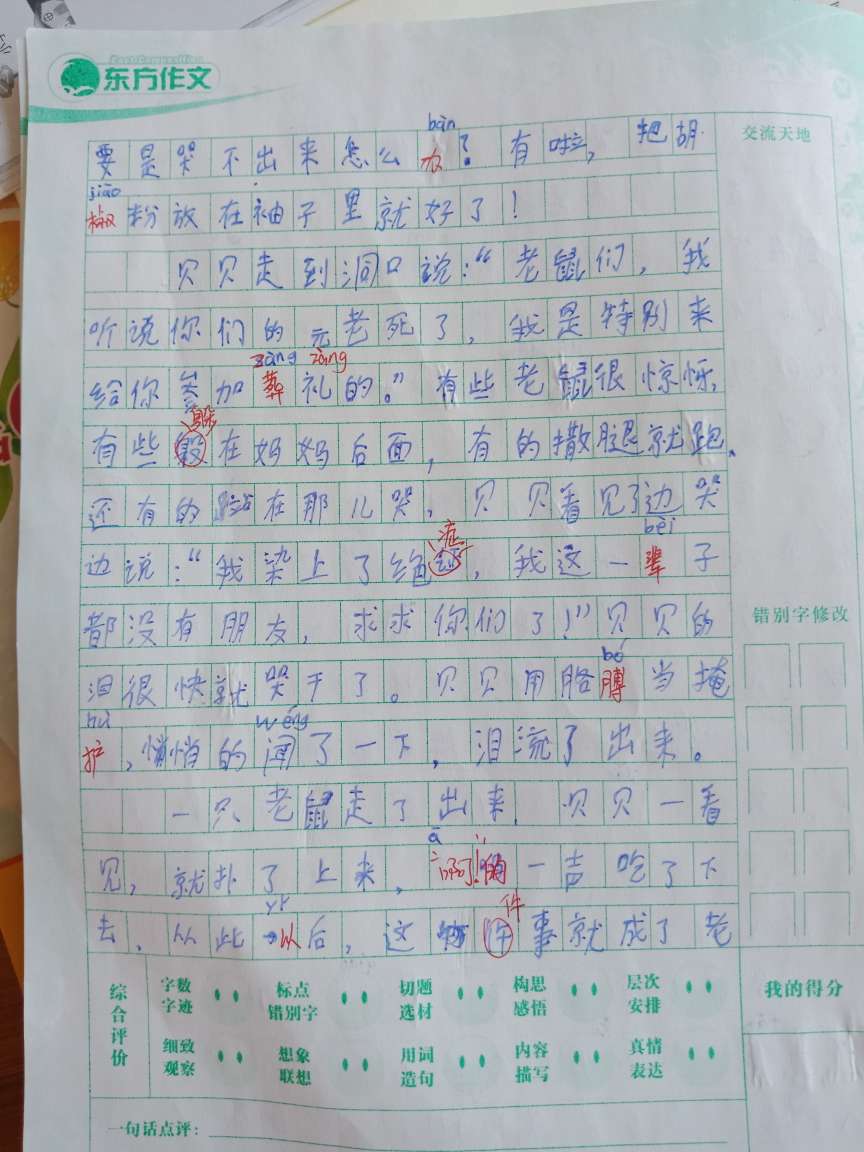 East Composition
东方作文
交流天地
bàn
要是哭不出来怎么办？有啦，把胡
jiāo
椒粉放在袖子里就好了！
贝贝走到洞口说：“老鼠们，我
听说你们的元老死了，我是特别来
zàng zàng
给你参加葬礼的。”有些老鼠很惊怀，
躲
有些在妈妈后面，有的撒腿就跑、
还有的站在那儿哭，贝贝看见了边哭
症 bèi
边说：“我染上了绝证，我这一辈子
都没有朋友，求求你们了！”贝贝的
错别字修改
bó
泪很快就哭干了。贝贝用胳膊当掩
hù wéng
护，悄悄的闻了一下，泪流了出来。
一只老鼠走了出来，贝贝一看
ā
见，就扑了上来，“啊！”的一声吃了下
yǐ 件
去，从此以后，这件事就成了老
综合评价
字数字迹
标点错别字
切题选材
构思感悟
层次安排
我的得分
细致观察
想象联想
用词造句
内容描写
真情表达
一句话点评：